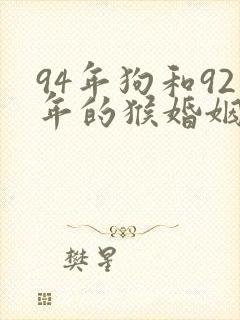 94年狗和92
年的猴婚姻
樊星